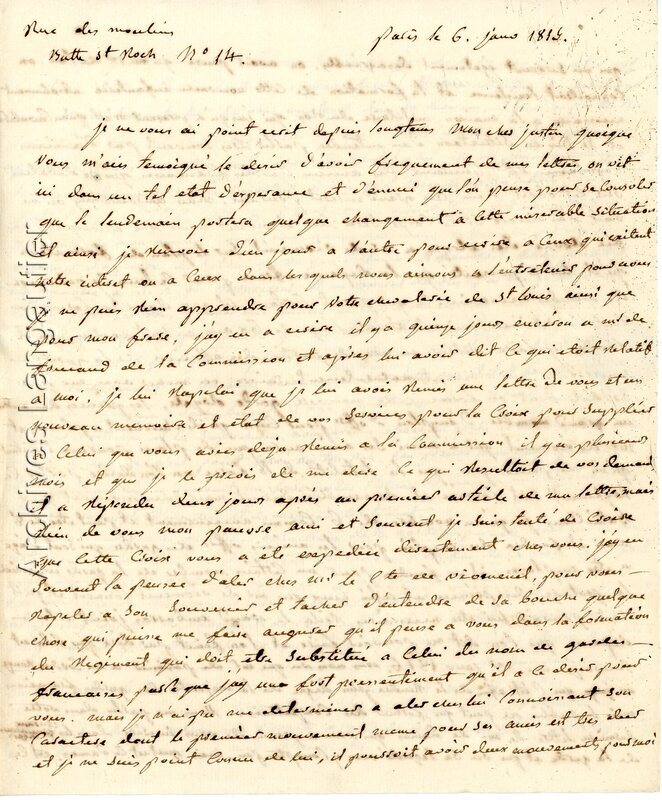 Rue des moulins
Butte St Roch N° 14.
Paris le 6. janv 1815.
je ne vous ai point ecrit depuis longtems mon cher justin, quoique
vous m'aies temoigné le desir d'avoir frequement de mes lettres, on vit
ici dans un tel etat d'esperance et d'ennui que l'on pense pour se consoler
que le lendemain portera quelque changement a cette miserable situation
et ainsi je renvoie d'un jour a l'autre pour ecrire, a ceux qui
notre interet ou a ceux dans les quels nous aimons a
je ne puis rien apprendre pour votre chevalerie de St louis ainsi que
pour mon frere, j'ay en a ecrire il y a quinze jours environ a mr de
de la Commission et apres lui avoir dit ce qui etoit relatif
a moi, je lui rapelai que je lui avois remis une lettre de vous et un
nouveau memoire et etat de vos services pour la Croix pour suppléer
a celui que vous avies deja remis a la Commission il y a plusieurs
mois et que je le priois de me dire ce qui resultoit de vos demandes
il a repondu deux jours après au premier article de ma lettre, mais
rien de vous mon pauvre ami et souvent je suis tenté de croire
que cette Croix vous a été expediée directement chez vous. j'ay eu
souvent la pensée d'aler chez mr le Cte de viomenil, pour vous
rapeler a son souvenir et tacher d'entendre de sa bouche quelque
chose qui puisse me faire augurer qu'il pense a vous dans la formation
du Regiment qui doit etre substitué a celui du nom de gardes
francaises parce que j'ay un fort pressentiment qu'il a ce desir pour
vous. mais je n'ai pu me determiner a aler chez lui connoissant son
caractere dont le premier mouvement meme pour ses amis est tres dur
et je ne suis point connu de lui, il pourroit avoir deux mouvements pour moi
Archives Largentier